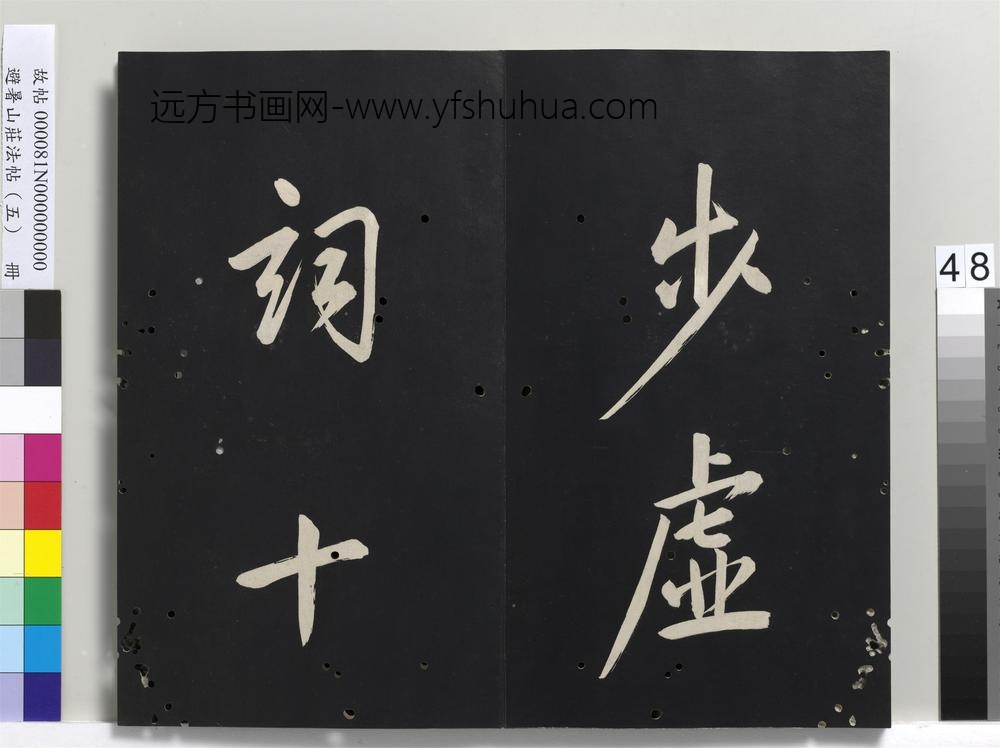 步虛
詞十
远方书画网-www.yfshuhua.com
故帖 000081N000000000
避暑山莊法帖（五） 冊
48